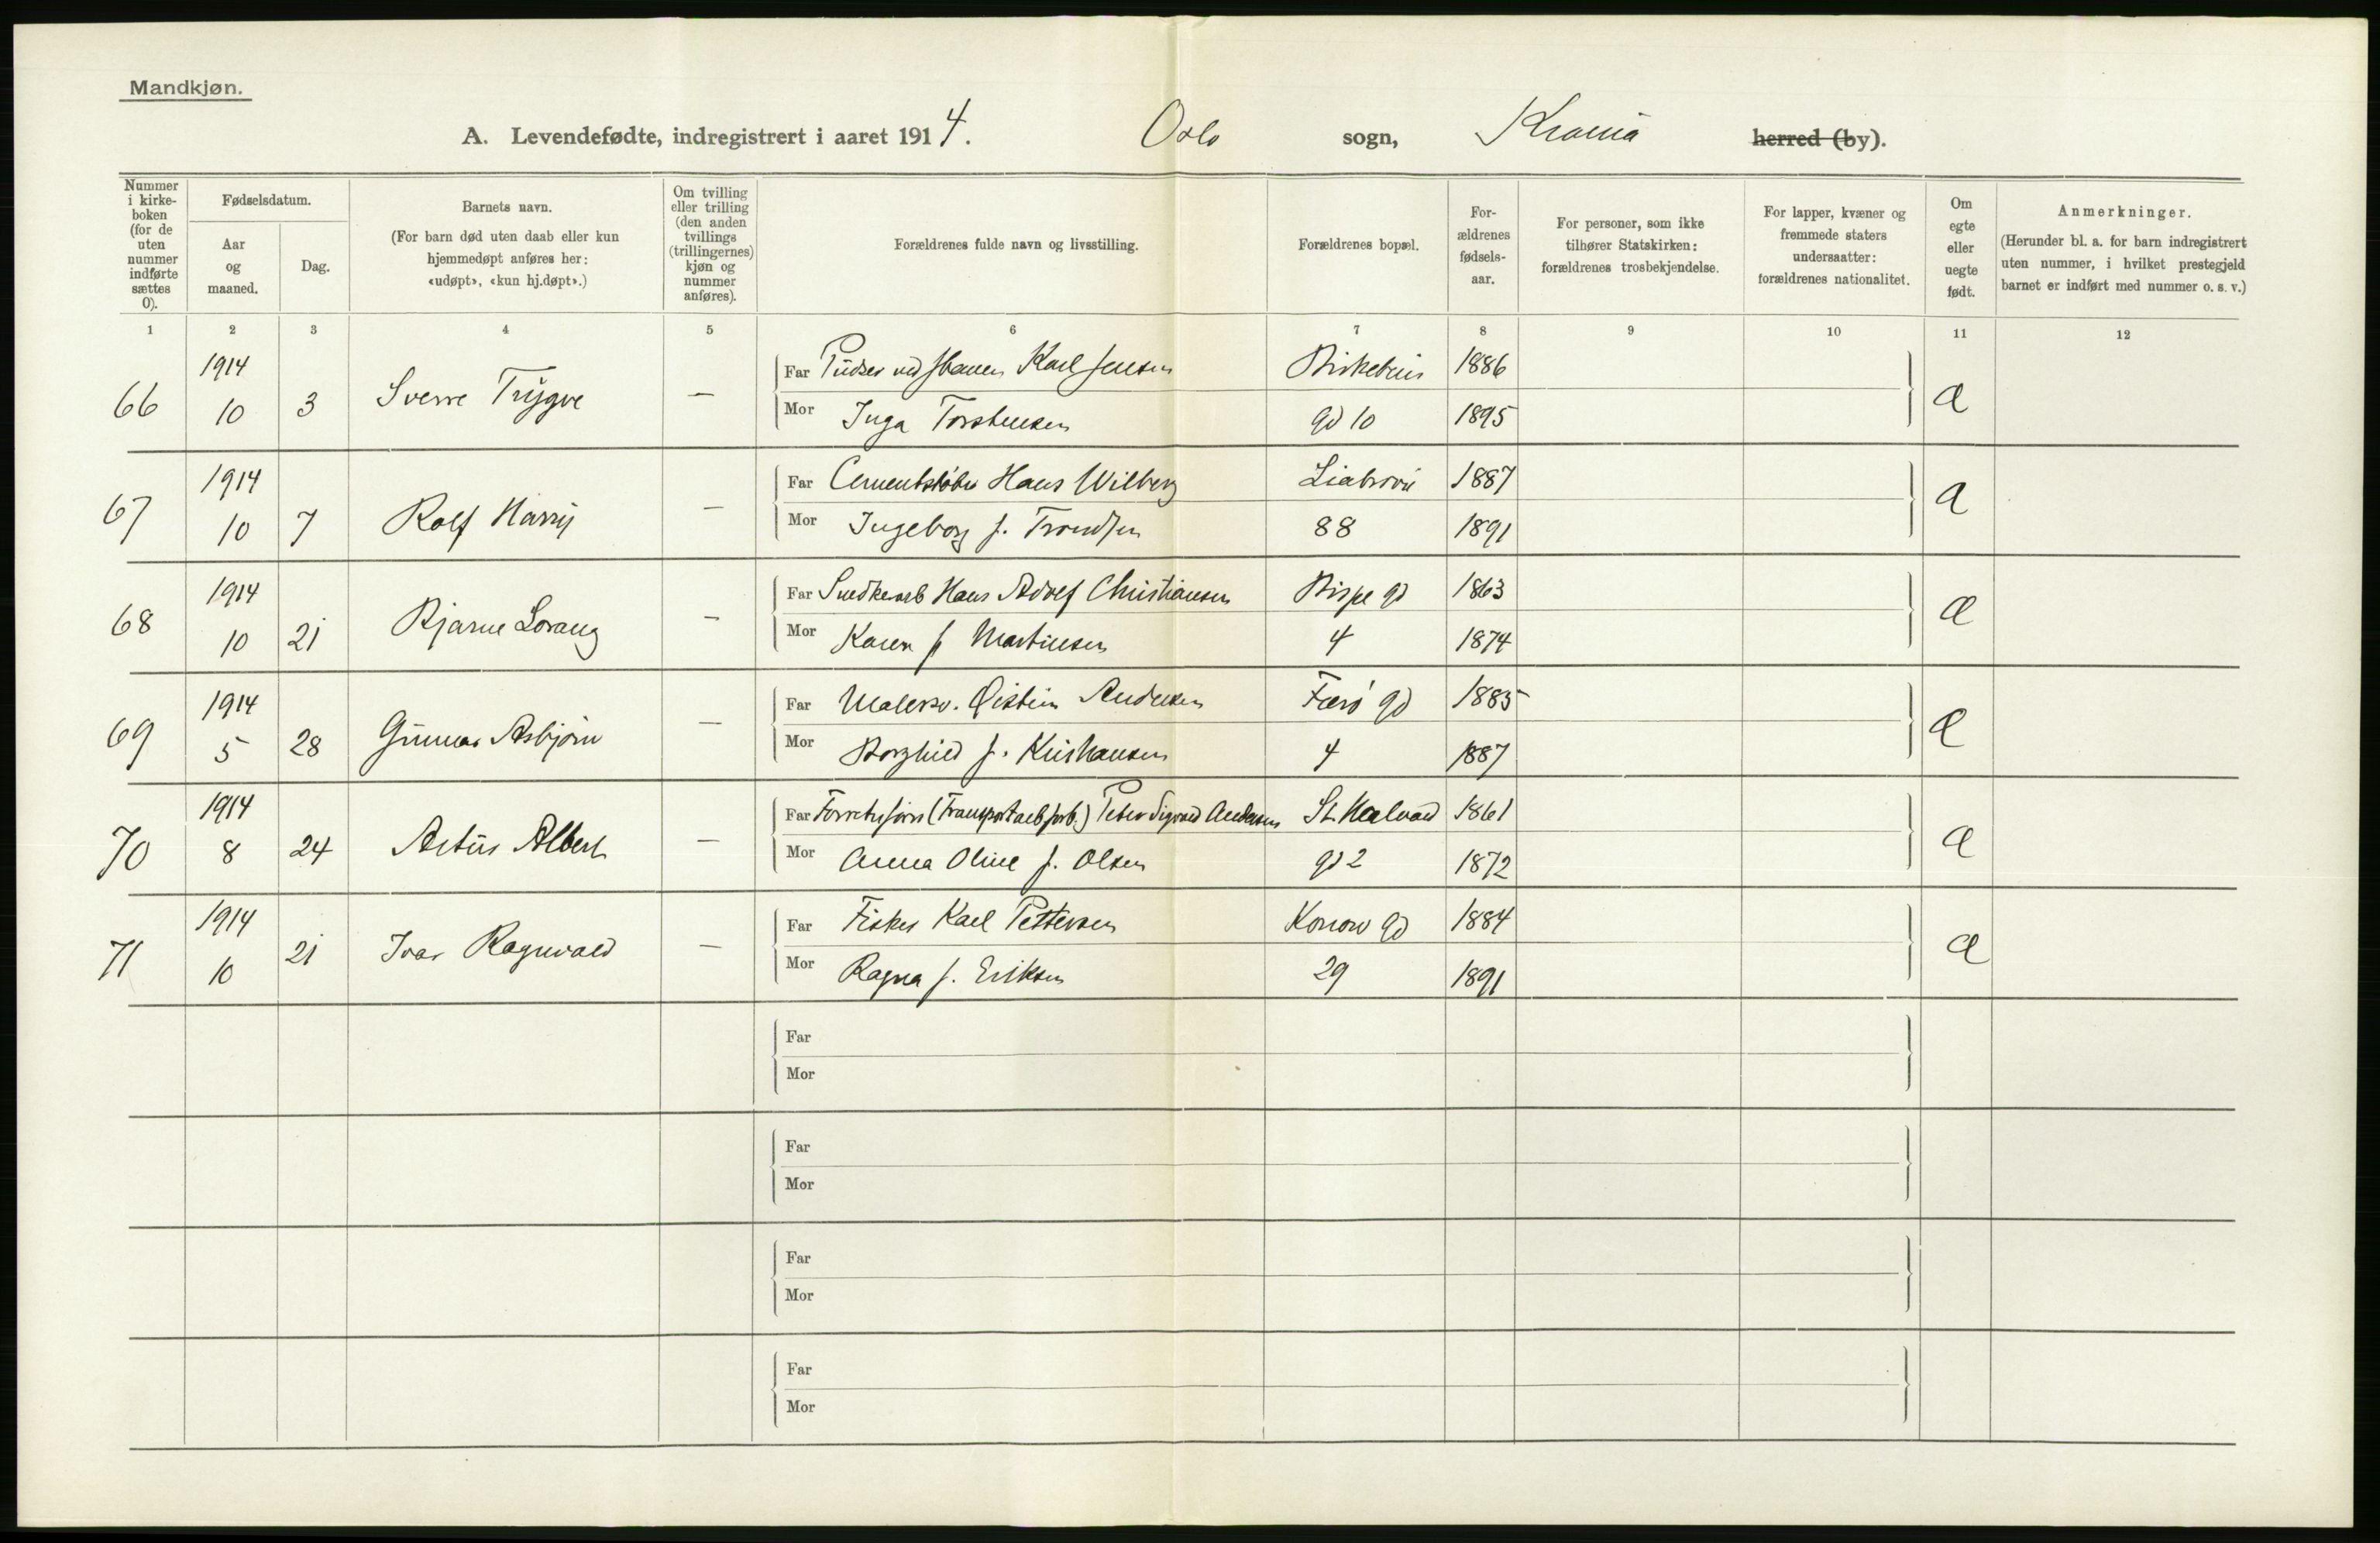 Mandkjøn.
A. Levendefødte, indregistrert i aaret 1914. Oslo sogn, Krania herred (by).
Nummer i kirkeboken (for de uten nummer indførte sættes 0).
Fødselsdatum.
Aar og maaned.
Dag.
Barnets navn.
(For barn død uten daab eller kun hjemmedøpt anføres her: «udøpt», «kun hj.døpt».)
Om tvilling eller trilling (den anden tvillings (trillingernes) kjøn og nummer anføres).
Forældrenes fulde navn og livsstilling.
Forældrenes bopæl.
Forældrenes fødselsaar.
For personer, som ikke tilhører Statskirken: forældrenes trosbekjendelse.
For lapper, kvæner og fremmede staters undersaatter: forældrenes nationalitet.
Om egte eller uegte født.
Anmerkninger.
(Herunder bl. a. for barn indregistrert uten nummer, i hvilket prestegjeld barnet er indført med nummer o. s. v.)
1 2 3 4 5 6 7 8 9 10 11 12
1914 Far Pudser ved Karl Jensen Birkebein 1886
66 10 3 Sverre Trygve — Mor Inga Torstensen gd 10 1895
1914 Far Cementstøber Hans Wilberg Liabrovei 1887
67 10 7 Rolf Harry — Mor Ingeborg f. Trondsen 88 1891
1914 Far Snedkerarb Hans Adolf Christiansen Bispe gd 1863
68 10 21 Bjarne Lorang — Mor Karen f Martinsen 4 1874
1914 Far Malersv. Øistein Andresen Færö gd 1885
69 5 28 Gunnar Asbjørn — Mor Borghild f. Kristiansen 4 1887
1914 Far (Transportarb.forb.) Peter Sigvard Andersen St. Halvard 1861
70 8 24 Artur Albert — Mor Anna Oline f. Olsen gd 2 1872
1914 Far Fisker Karl Pettersen Konow gd 1884
71 10 21 Ivar Ragnvald — Mor Ragna f. Eriksen 29 1891
Far
Mor
Far
Mor
Far
Mor
Far
Mor